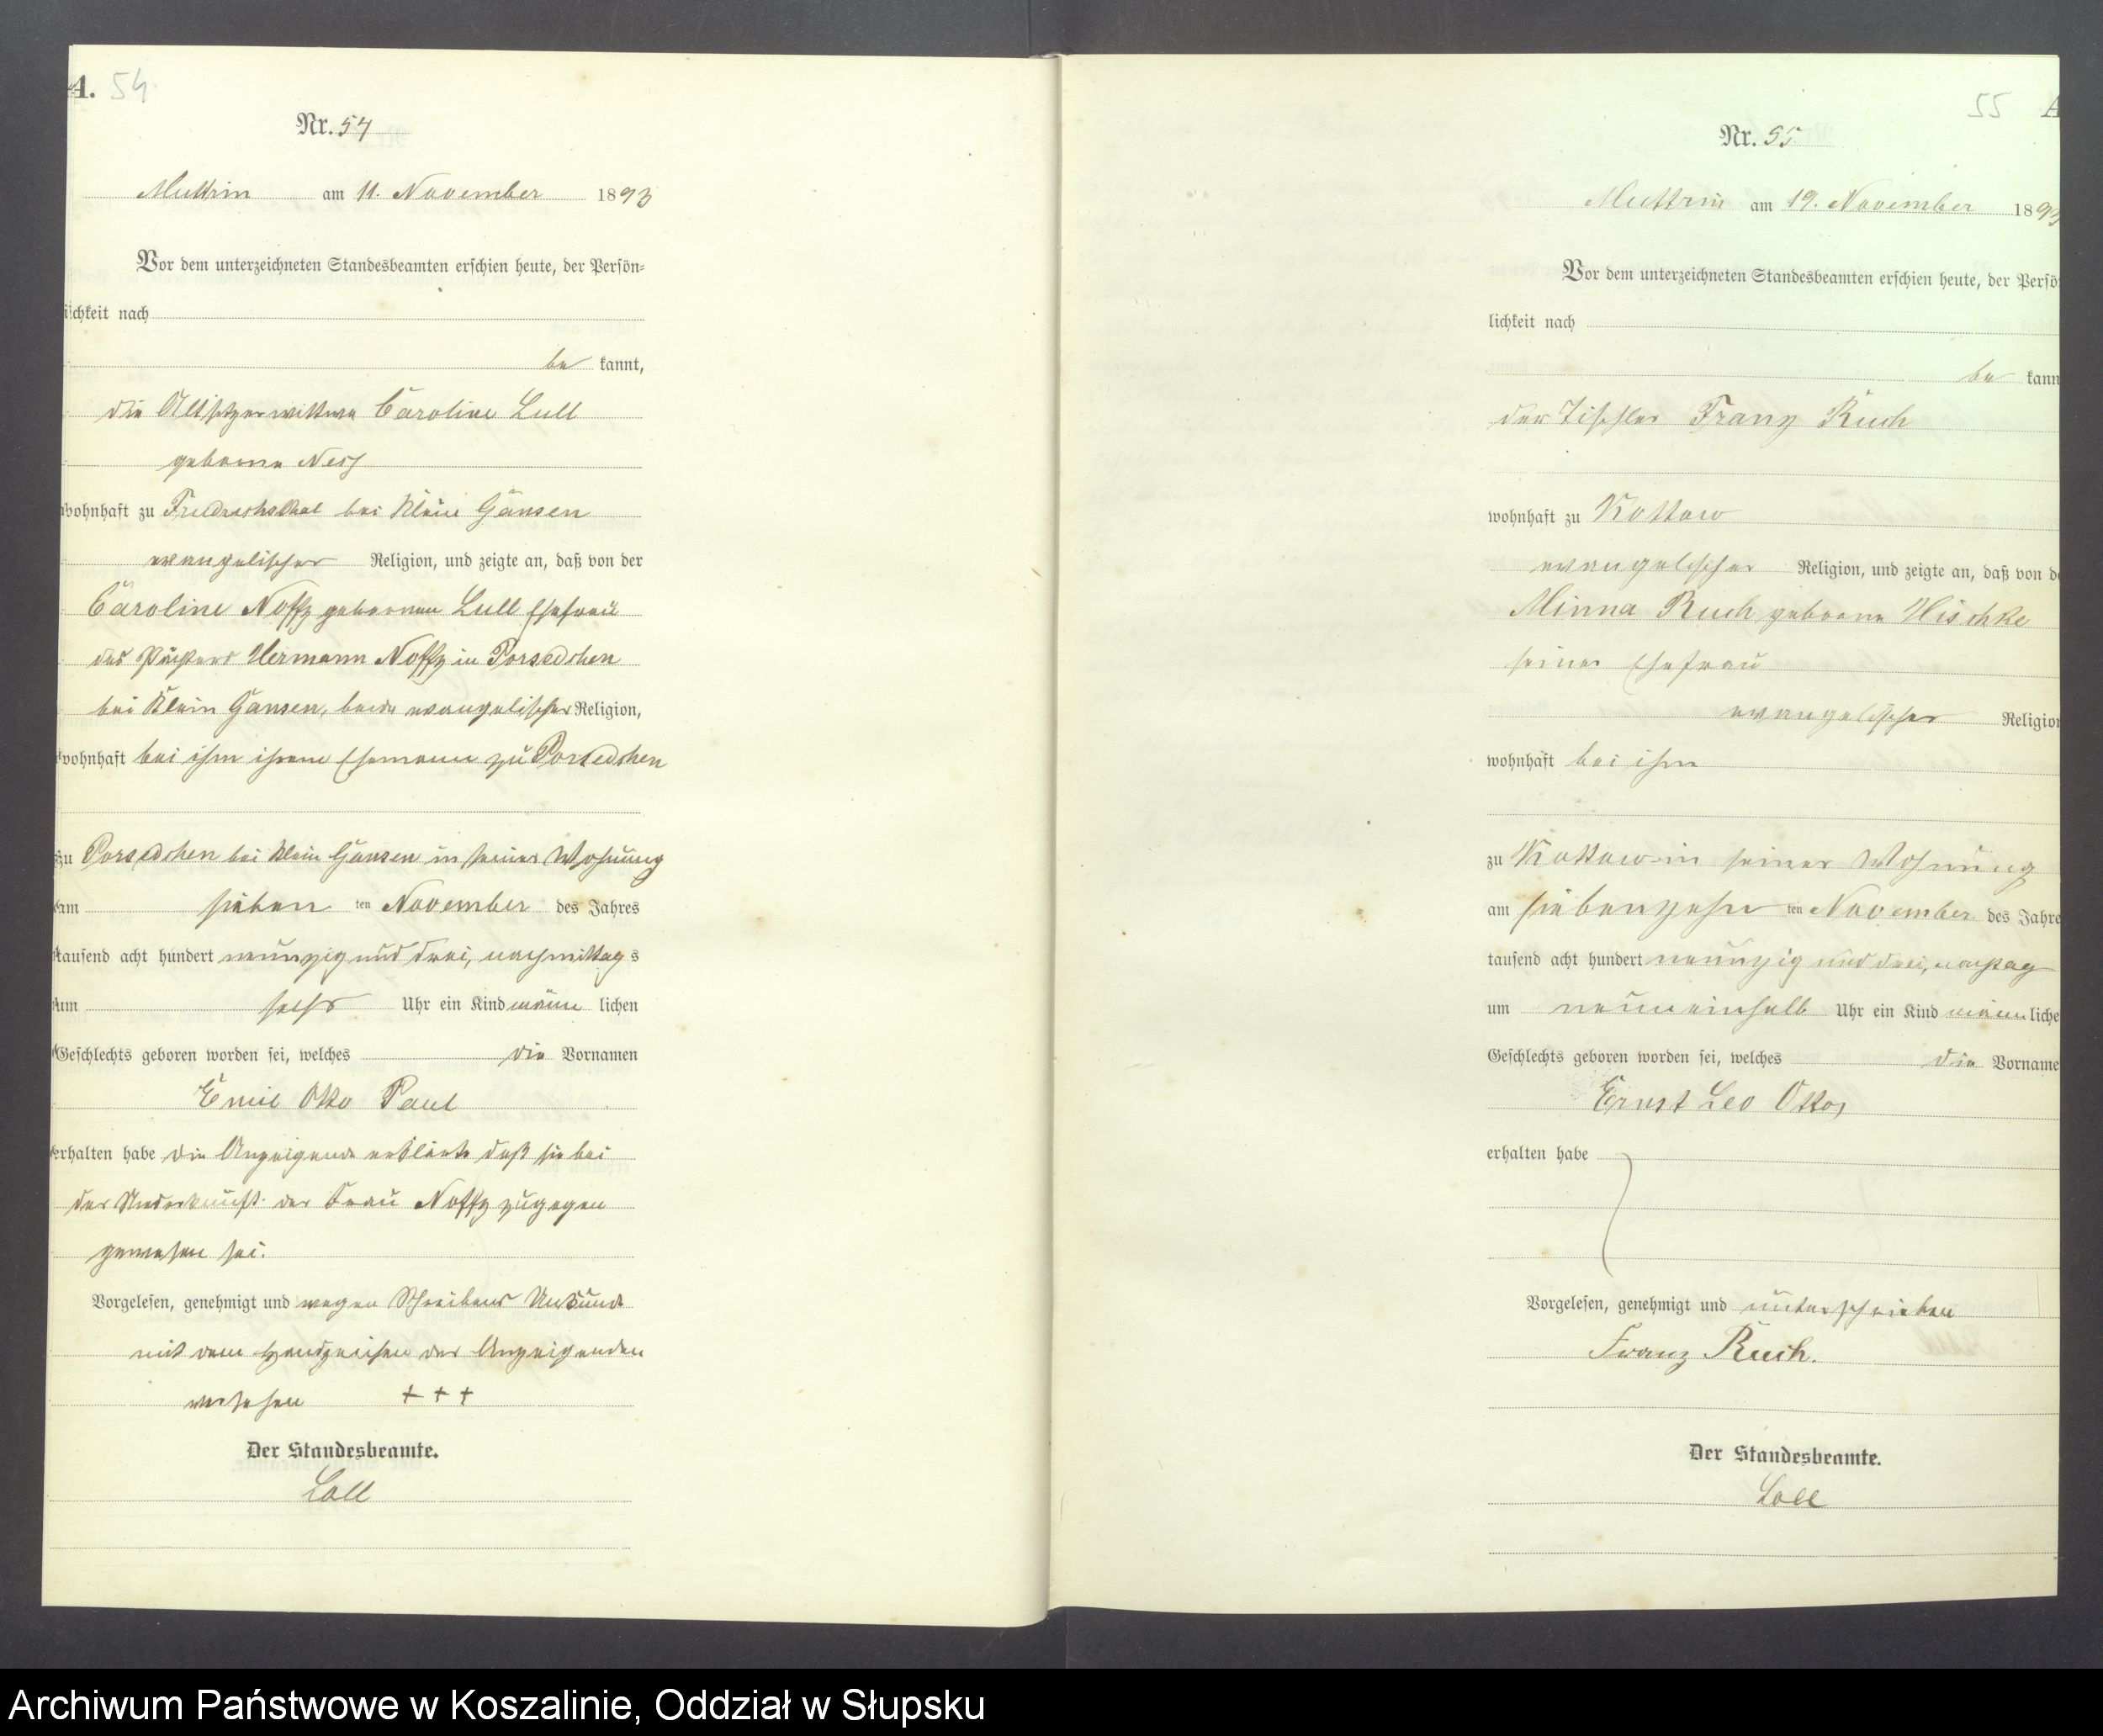 A. 54
Nr. 54
Muttrin am 11. November 1893
Vor dem unterzeichneten Standesbeamten erschien heute, der Persön=
lichkeit nach
be kannt,
die Altsitzerwittwe Caroline Lull
geborne
wohnhaft zu Friedrichsthal bei Klein Gansen
evangelischer Religion, und zeigte an, daß von der
Caroline Noffz gebornen Lull Ehefrau
des Pächters Hermann Noffz in
bei Klein Gansen, beide evangelischer Religion,
wohnhaft bei ihm ihrem Ehemann zu
zu bei Klein Gansen in seiner Wohnung
am sieben ten November des Jahres
tausend acht hundert neunzig und drei, nachmittag s
um sechs Uhr ein Kind männ lichen
Geschlechts geboren worden sei, welches die Vornamen
Emil Otto Paul
erhalten habe die Anzeigende erklärte daß sie bei
der Niederkunft der Frau Noffz zugegen
gewesen sei.
Vorgelesen, genehmigt und wegen Schreibens Unkunde
mit dem Handzeichen der Anzeigenden
versehen + + +
Der Standesbeamte.
Loll
55 A
Nr. 55
Muttrin am 19. November 1893
Vor dem unterzeichneten Standesbeamten erschien heute, der Persö
lichkeit nach
be kann
der Tischler Franz Ruch
wohnhaft zu Kottow
evangelischer Religion, und zeigte an, daß von de
Minna Ruch geborne Hischke
seiner Ehefrau
evangelischer Religion
wohnhaft bei ihm
zu Kottow in seiner Wohnung
am siebenzehn ten November des Jahre
tausend acht hundert neunzig und drei,
um neuneinhalb Uhr ein Kind männ liche
Geschlechts geboren worden sei, welches die Vorname
Ernst Leo Otto
erhalten habe
Vorgelesen, genehmigt und unterschrieben
Franz Ruch.
Der Standesbeamte.
Loll
Archiwum Państwowe w Koszalinie, Oddział w Słupsku